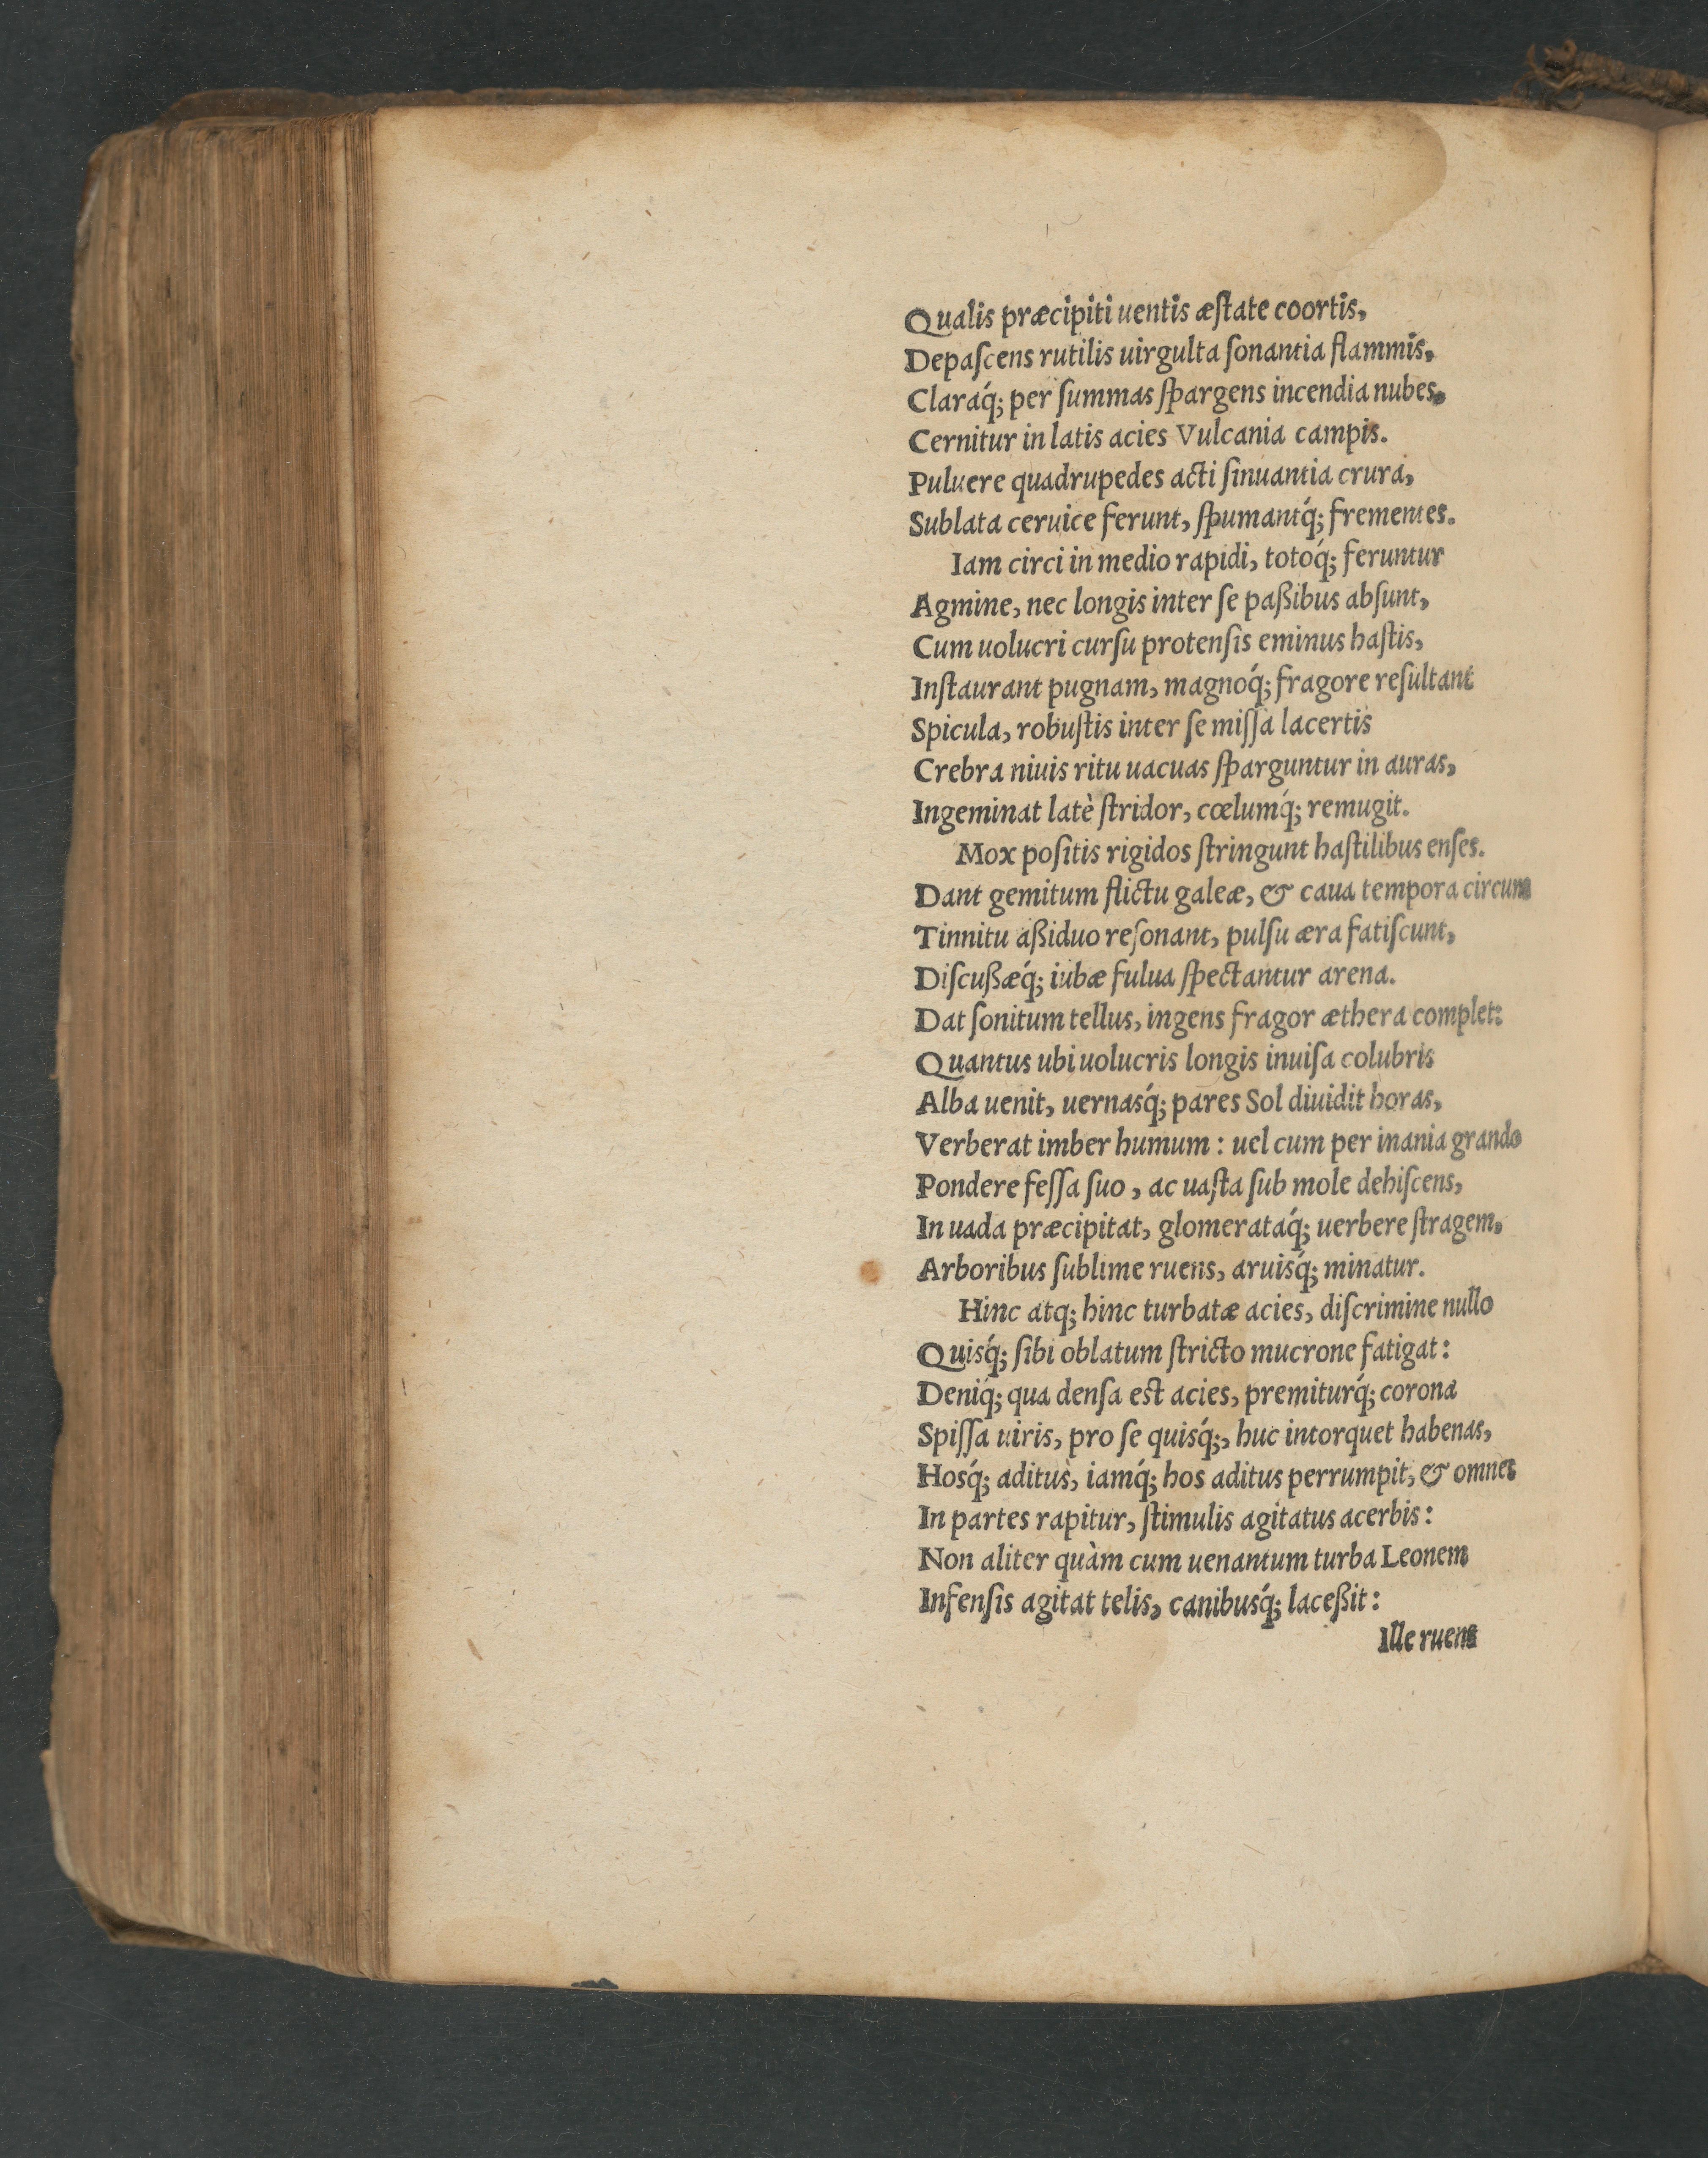 Qualis præcipiti uentis æſtate coortis,
Depaſcens rutilis uirgulta ſonantia flammis,
Claraq́; per ſummas ſpargens incendia nubes,
Cernitur in latis acies Vulcania campis.
Puluere quadrupedes acti ſinuantia crura,
Sublata ceruice ferunt, ſpumantq́; frementes.
Iam circi in medio rapidi, totoq́; feruntur
Agmine, nec longis inter ſe paßibus abſunt,
Cum uolucri curſu protenſis eminus haſtis,
Inſtaurant pugnam, magnoq́; fragore reſultant
Spicula, robuſtis inter ſe miſſa lacertis
Crebra niuis ritu uacuas ſparguntur in auras,
Ingeminat latè ſtridor, cœlumq́; remugit.
Mox poſitis rigidos ſtringunt haſtilibus enſes.
Dant gemitum flictu galeæ, & caua tempora circum
Tinnitu aßiduo reſonant, pulſu æra fatiſcunt,
Diſcußæq́; iubæ fulua ſpectantur arena.
Dat ſonitum tellus, ingens fragor æthera complet:
Quantus ubi uolucris longis inuiſa colubris
Alba uenit, uernasq́; pares Sol diuidit horas,
Verberat imber humum : uel cum per inania grando
Pondere feſſa ſuo , ac uaſta ſub mole dehiſcens,
In uada præcipitat, glomerataq́; uerbere ſtragem,
Arboribus ſublime ruens, aruisq́; minatur.
Hinc atq; hinc turbatæ acies, diſcrimine nullo
Quisq́; ſibi oblatum ſtricto mucrone fatigat:
Deniq́; qua denſa est acies, premiturq́; corona
Spiſſa uiris, pro ſe quisq́;, huc intorquet habenas,
Hosq́; aditus, iamq́; hos aditus perrumpit, & omnes
In partes rapitur, ſtimulis agitatus acerbis:
Non aliter quàm cum uenantum turba Leonem
Infenſis agitat telis, canibusq́; laceßit:
Ille ruens